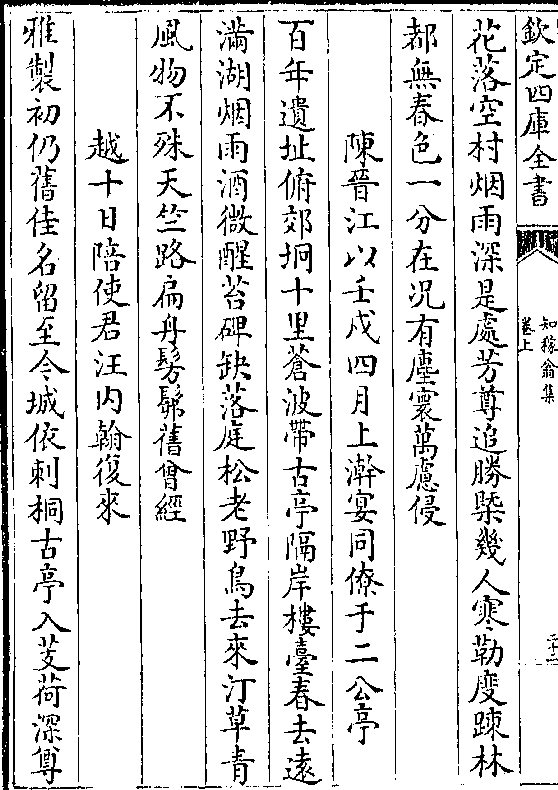 欽定四庫全書
知稼翁集
卷上
二十二
花落空村烟雨深是處芳尊追勝槩幾人寒勒度踈林
都無春色一分在况有塵寰萬慮侵
陳晉江以壬戌四月上澣宴同僚于二公亭
百年遺址俯郊坰十里蒼波帶古亭隔岸樓臺春去遠
滿湖烟雨酒微醒苔碑缺落庭松老野鳥去來汀草青
風物不殊天竺路扁舟髣髴舊曾經
越十日陪使君汪内翰復來
雅製初仍舊佳名留至今城依刺桐古亭入芰荷深尊